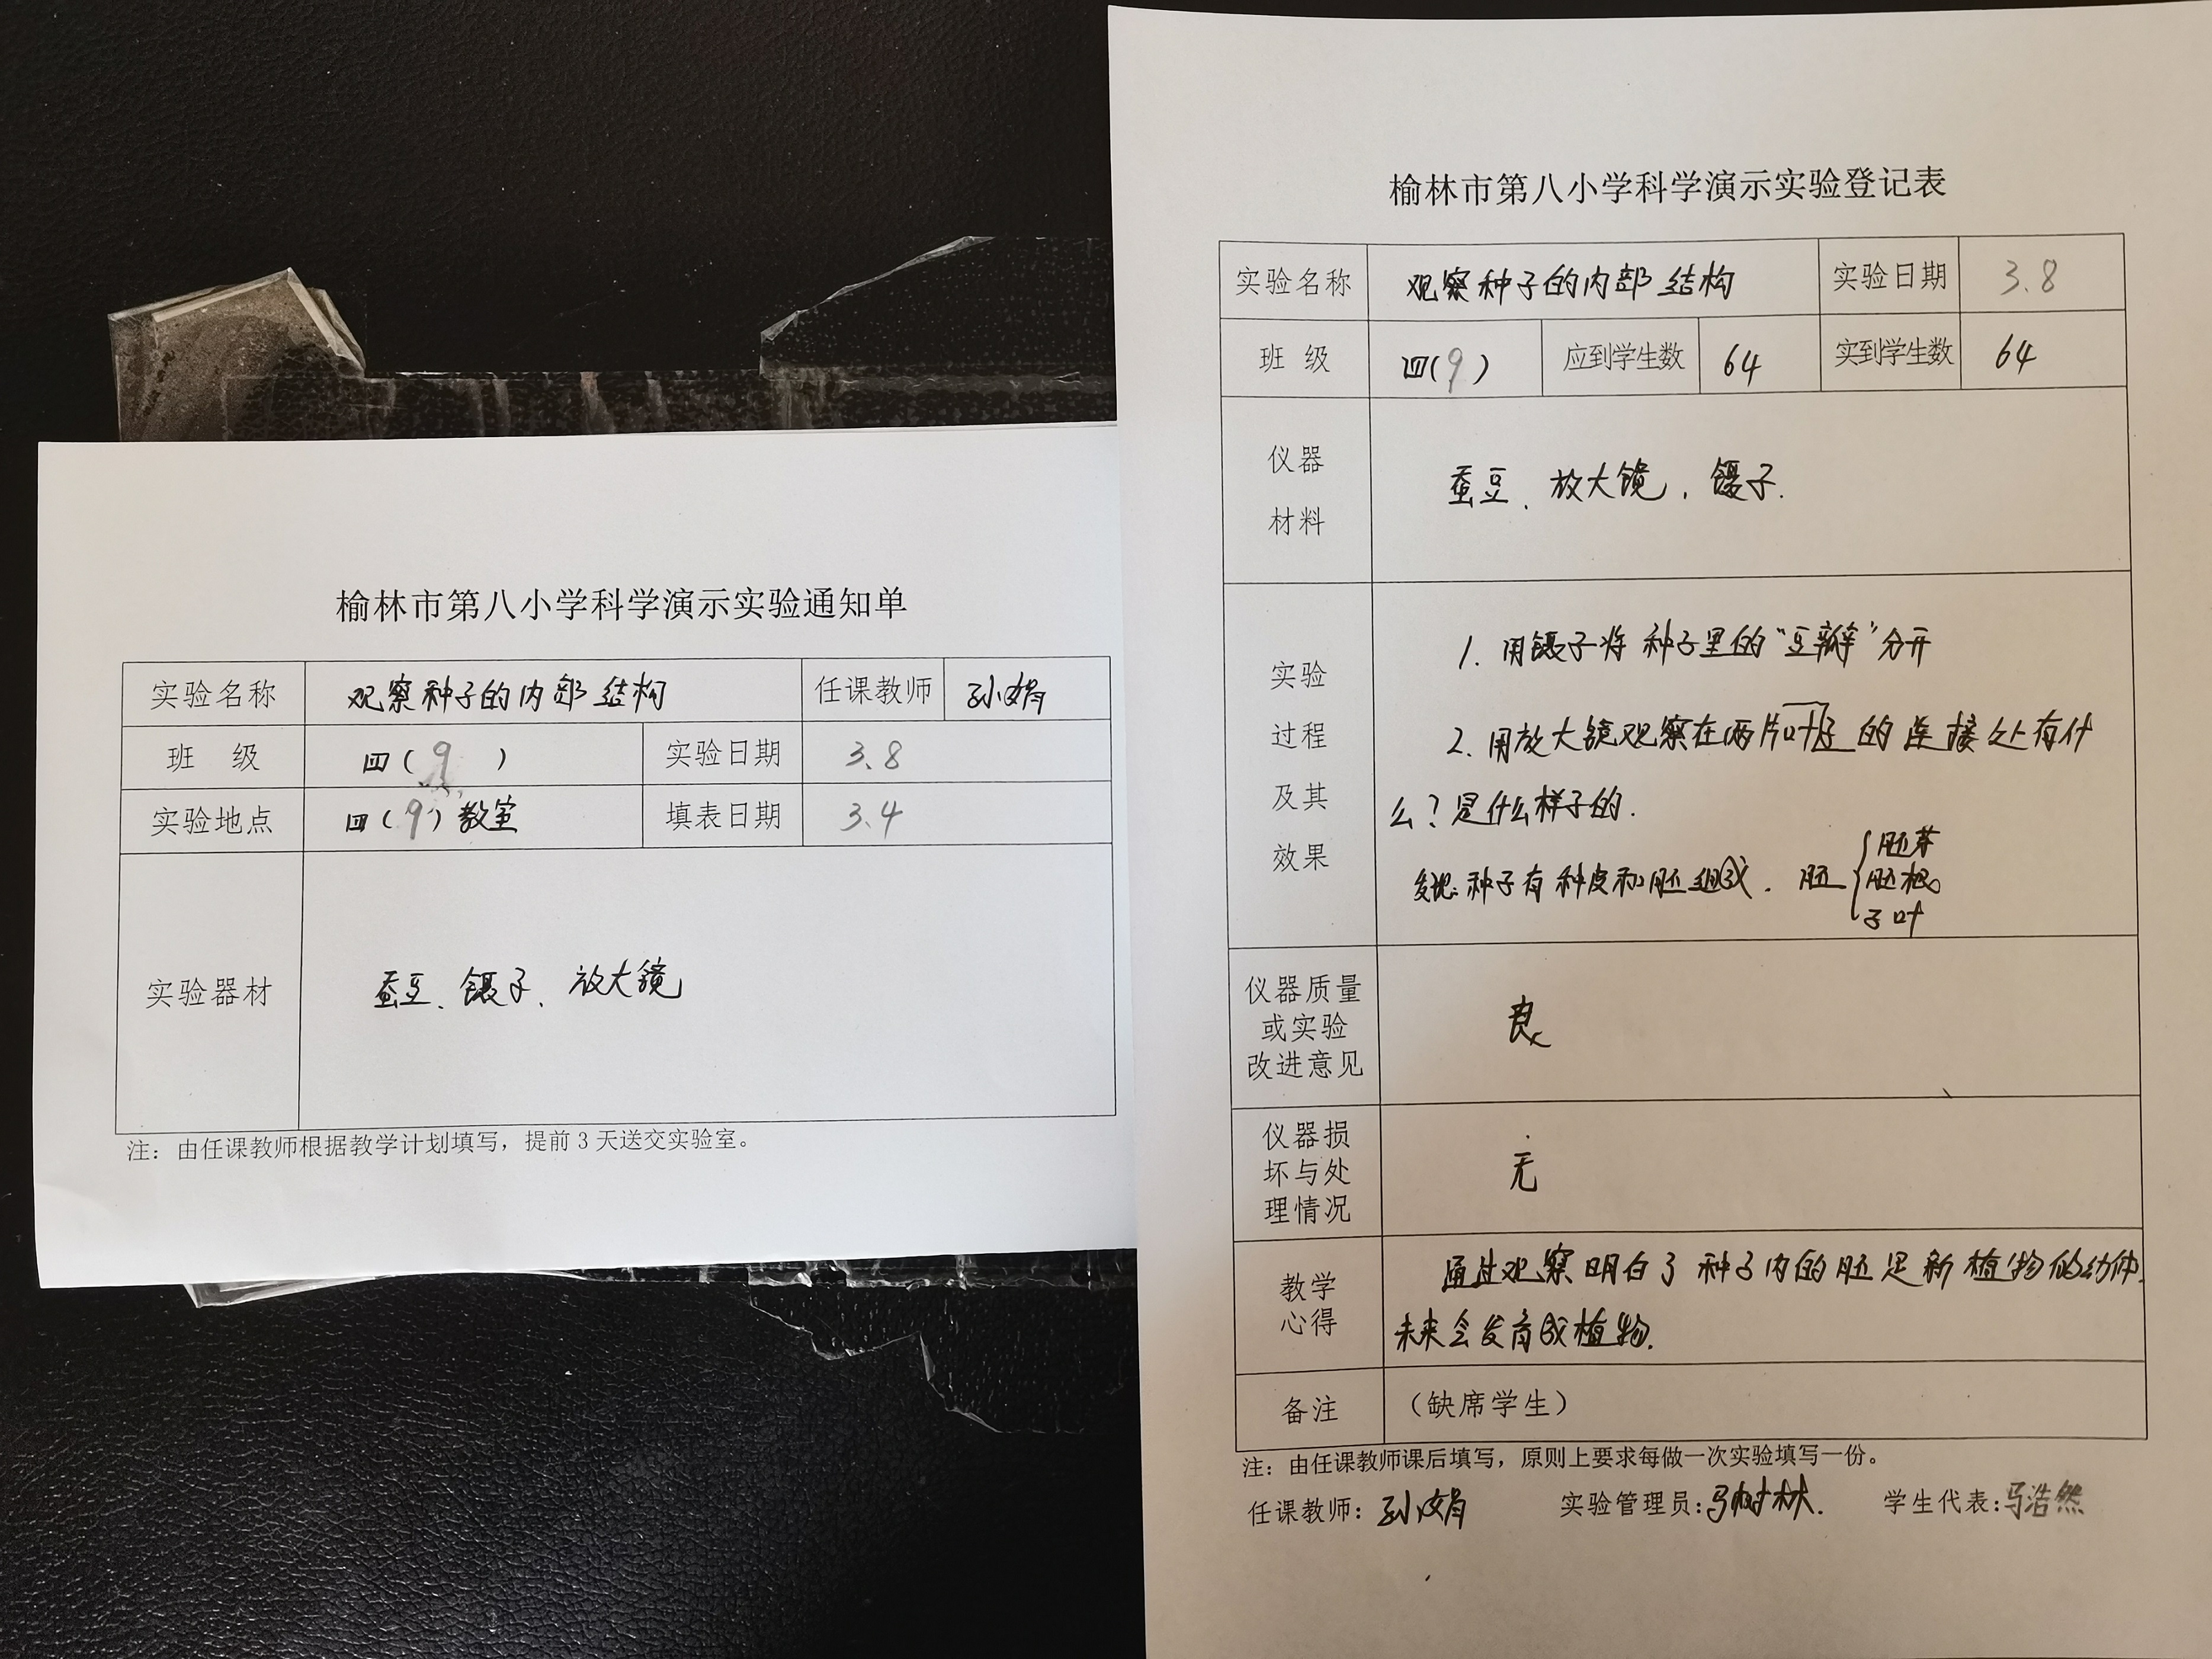 榆林市第八小学科学演示实验通知单
实验名称 观察种子的内部结构 任课教师 孙娟
班 级 四(9) 实验日期 3.8
实验地点 四(9)教室 填表日期 3.4
实验器材 蚕豆、镊子、放大镜
注：由任课教师根据教学计划填写，提前3天送交实验室。
榆林市第八小学科学演示实验登记表
实验名称 观察种子的内部结构 实验日期 3.8
班 级 四(9) 应到学生数 64 实到学生数 64
仪器
材料
蚕豆、放大镜、镊子.
实验
过程
及其
效果
1. 用镊子将种子里的“豆瓣”分开
2. 用放大镜观察在两片叶子的连接处有什
么？是什么样子的.
发现:种子有种皮和胚组成. 胚
胚芽
胚根
子叶
仪器质量
或实验
改进意见
良
仪器损
坏与处
理情况
无
教学
心得
通过观察明白了种子内的胚是新植物的幼体.
未来会发育成植物.
备注 （缺席学生）
注：由任课教师课后填写，原则上要求每做一次实验填写一份。
任课教师：孙娟 实验管理员:马树林. 学生代表:马浩然